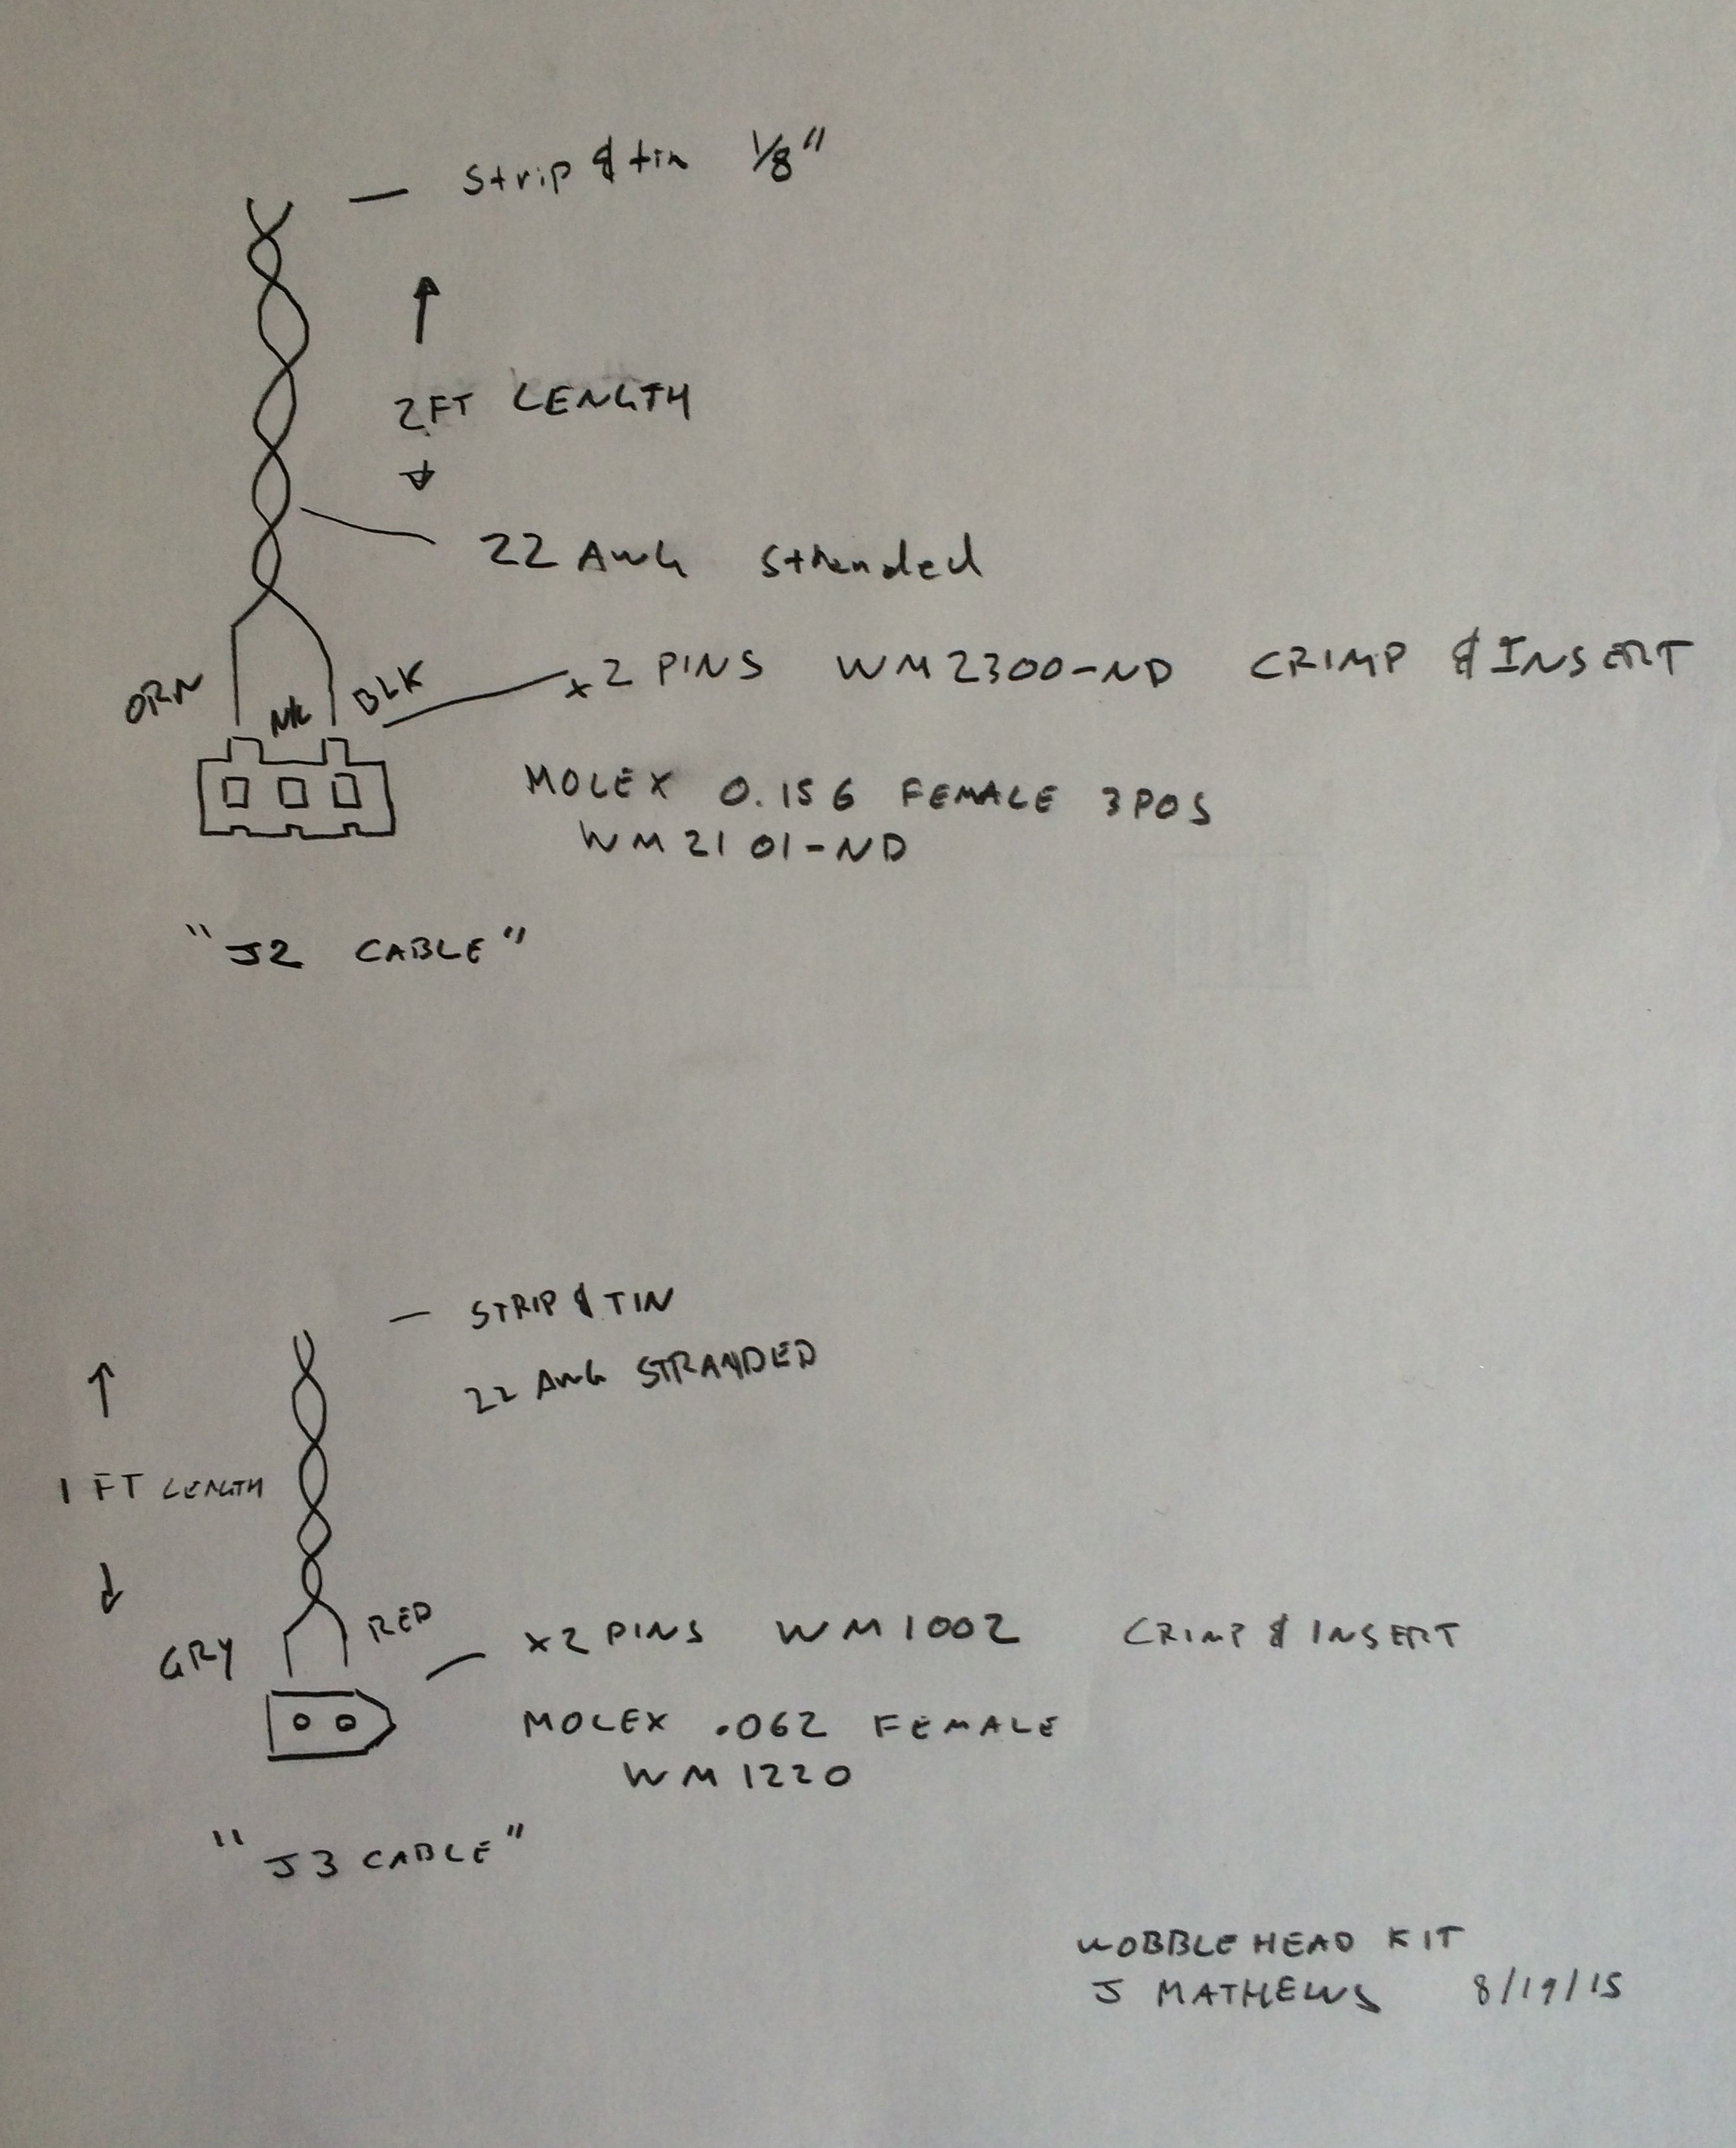 Strip & tin 1/8"
2FT LENGTH
22 AWG Stranded
ORN
BLK
x2 PINS WM2300-ND CRIMP & INSERT
MOLEX 0.156 FEMALE 3POS
WM2101-ND
"J2 CABLE"
STRIP & TIN
22 AWG STRANDED
1 FT LENGTH
GRY
RED
x2 PINS WM1002 CRIMP & INSERT
MOLEX .062 FEMALE
WM1220
"J3 CABLE"
WOBBLEHEAD KIT
J MATHEWS 8/19/15